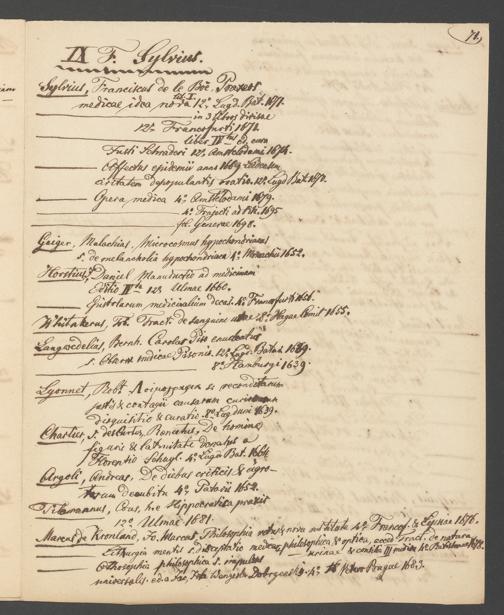 71.
IX F. Sylvius.
Sylvius, Franciscus de le Boë. Praxeos
medicae idea nova tit. I. 12º Lugd. Bat. 1671.
in 3 libros divisae
12º Francofurti 1671.
liber IV tus ed. cura
Justi Schraderi 12º Amstelodami 1674.
Affectus epidemii anni 1669 Leidensem
civitatem depopulantis oratio. 12º Lugd Bat. 1672.
Opera medica 4º Amstelodami 1679.
4º Trajecti ad Rh. 1695
fol. Genevae 1698.
Geiger, Malachias, Microcosmus hypochondriacus
s. de melancholia hypochondriaca 4º Monachii 1652.
Horstius, Daniel Manuductio ad medicinam
Editio IV ta 12º Ulmae 1660.
Epistolarum medicinalium decas. 4º Francofurti 1656.
Whitakerus, Tob. Tract. de sanguine uvae 8º Hagae Comit 1655.
Langwedelius, Bernh. Carolus Piso enucleatus
s. medicae Pisonis. 12º Lugd. Batav. 1639.
8º Hamburgi 1639.
Lyonnet, Robt. s. reconditarum
pestis & contagii causarum curiosa
disquisitio & curatio. 8º Lugduni 1639.
Chartus, s. descartes, Renatus, De homine
figuris & latinitate donatus a
Florentio Schuyl. 4º Lugd Bat. 1664
Argoli, Andreas, De diebus criticis & aegro-
torum decubitu 4º Patavii 1652.
Timmannus, Hippocratica praxis
12º Ulmae 1681.
Marcus de Kronland, Jo. Marcus, Philosophia vetus & nova restituta 4º Francof. & Lipsiae 1676.
Lithurgia mentis s. disceptatio medica, philosophica & optica, acced. Tract. de natura
urinae & 4º
Othosophia philosophica s. impulsus
universalis. ed. a Jac. Joh. Wenceslao Dobrzensky. 4º Pragae 1683.